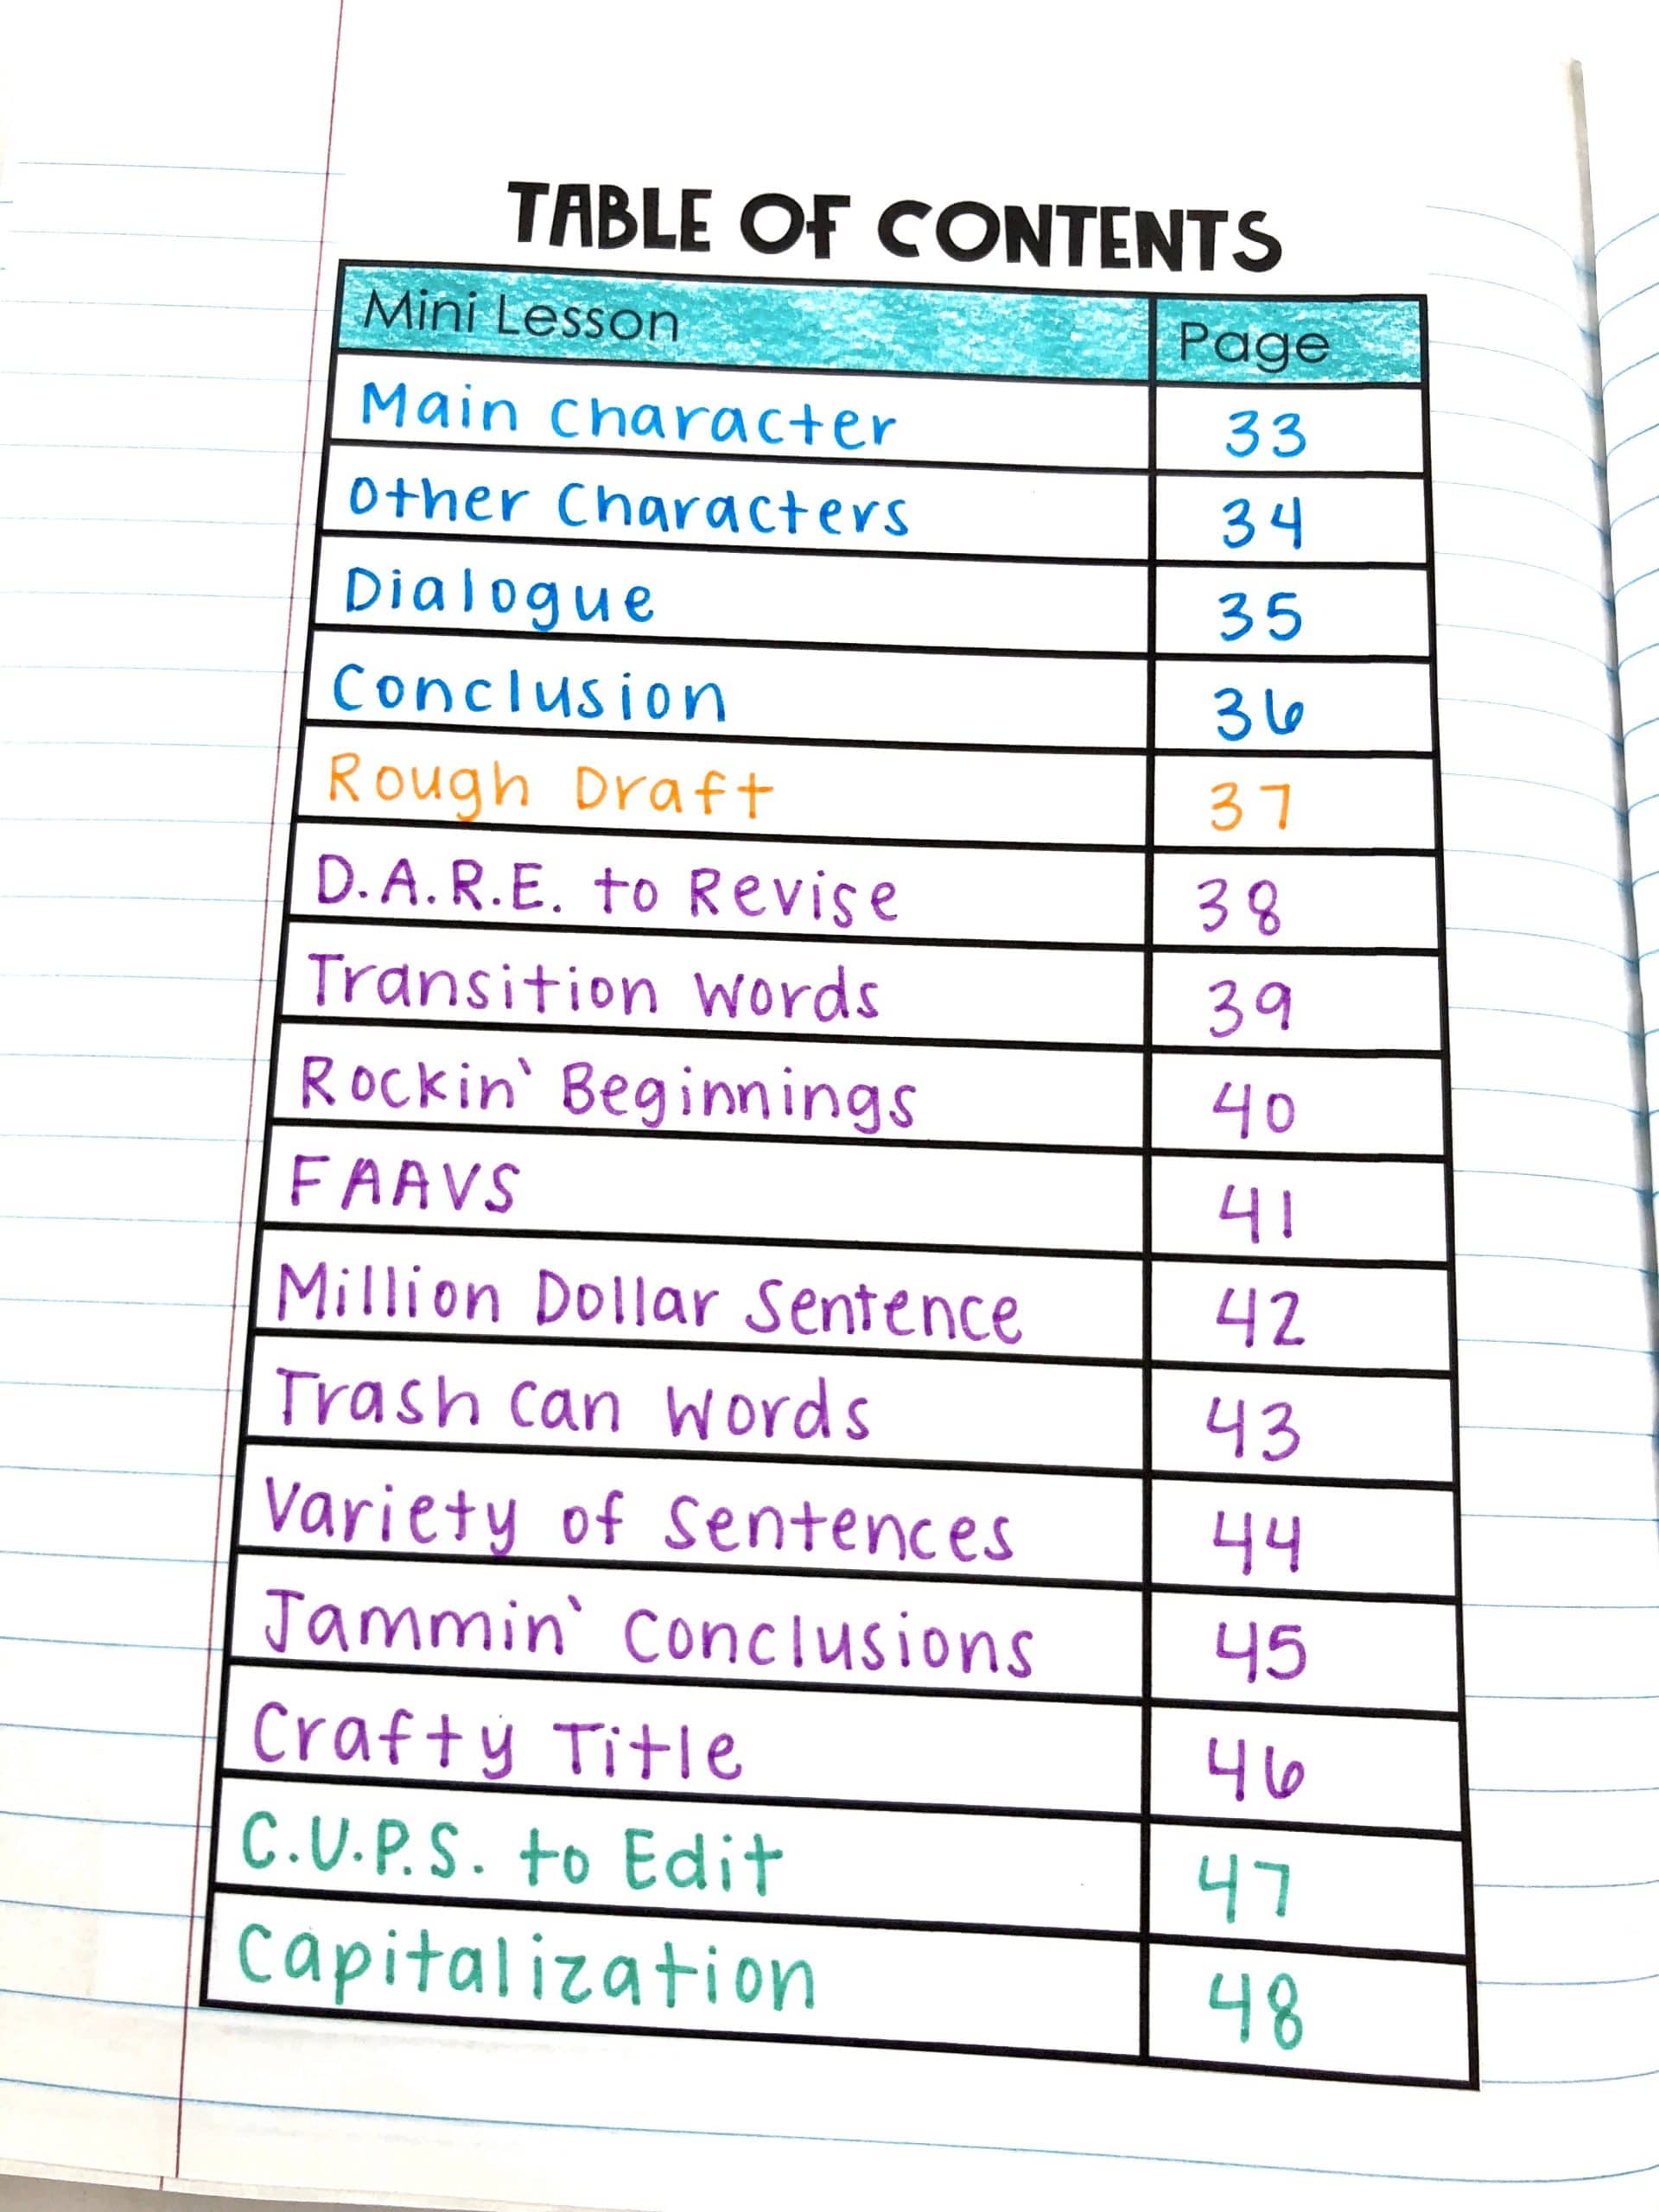 TABLE OF CONTENTS
Mini Lesson Page
Main Character 33
Other Characters 34
Dialogue 35
Conclusion 36
Rough Draft 37
D.A.R.E. to Revise 38
Transition Words 39
Rockin' Beginnings 40
FAAVS 41
Million Dollar Sentence 42
Trash Can Words 43
Variety of Sentences 44
Jammin' Conclusions 45
Crafty Title 46
C.U.P.S. to Edit 47
Capitalization 48